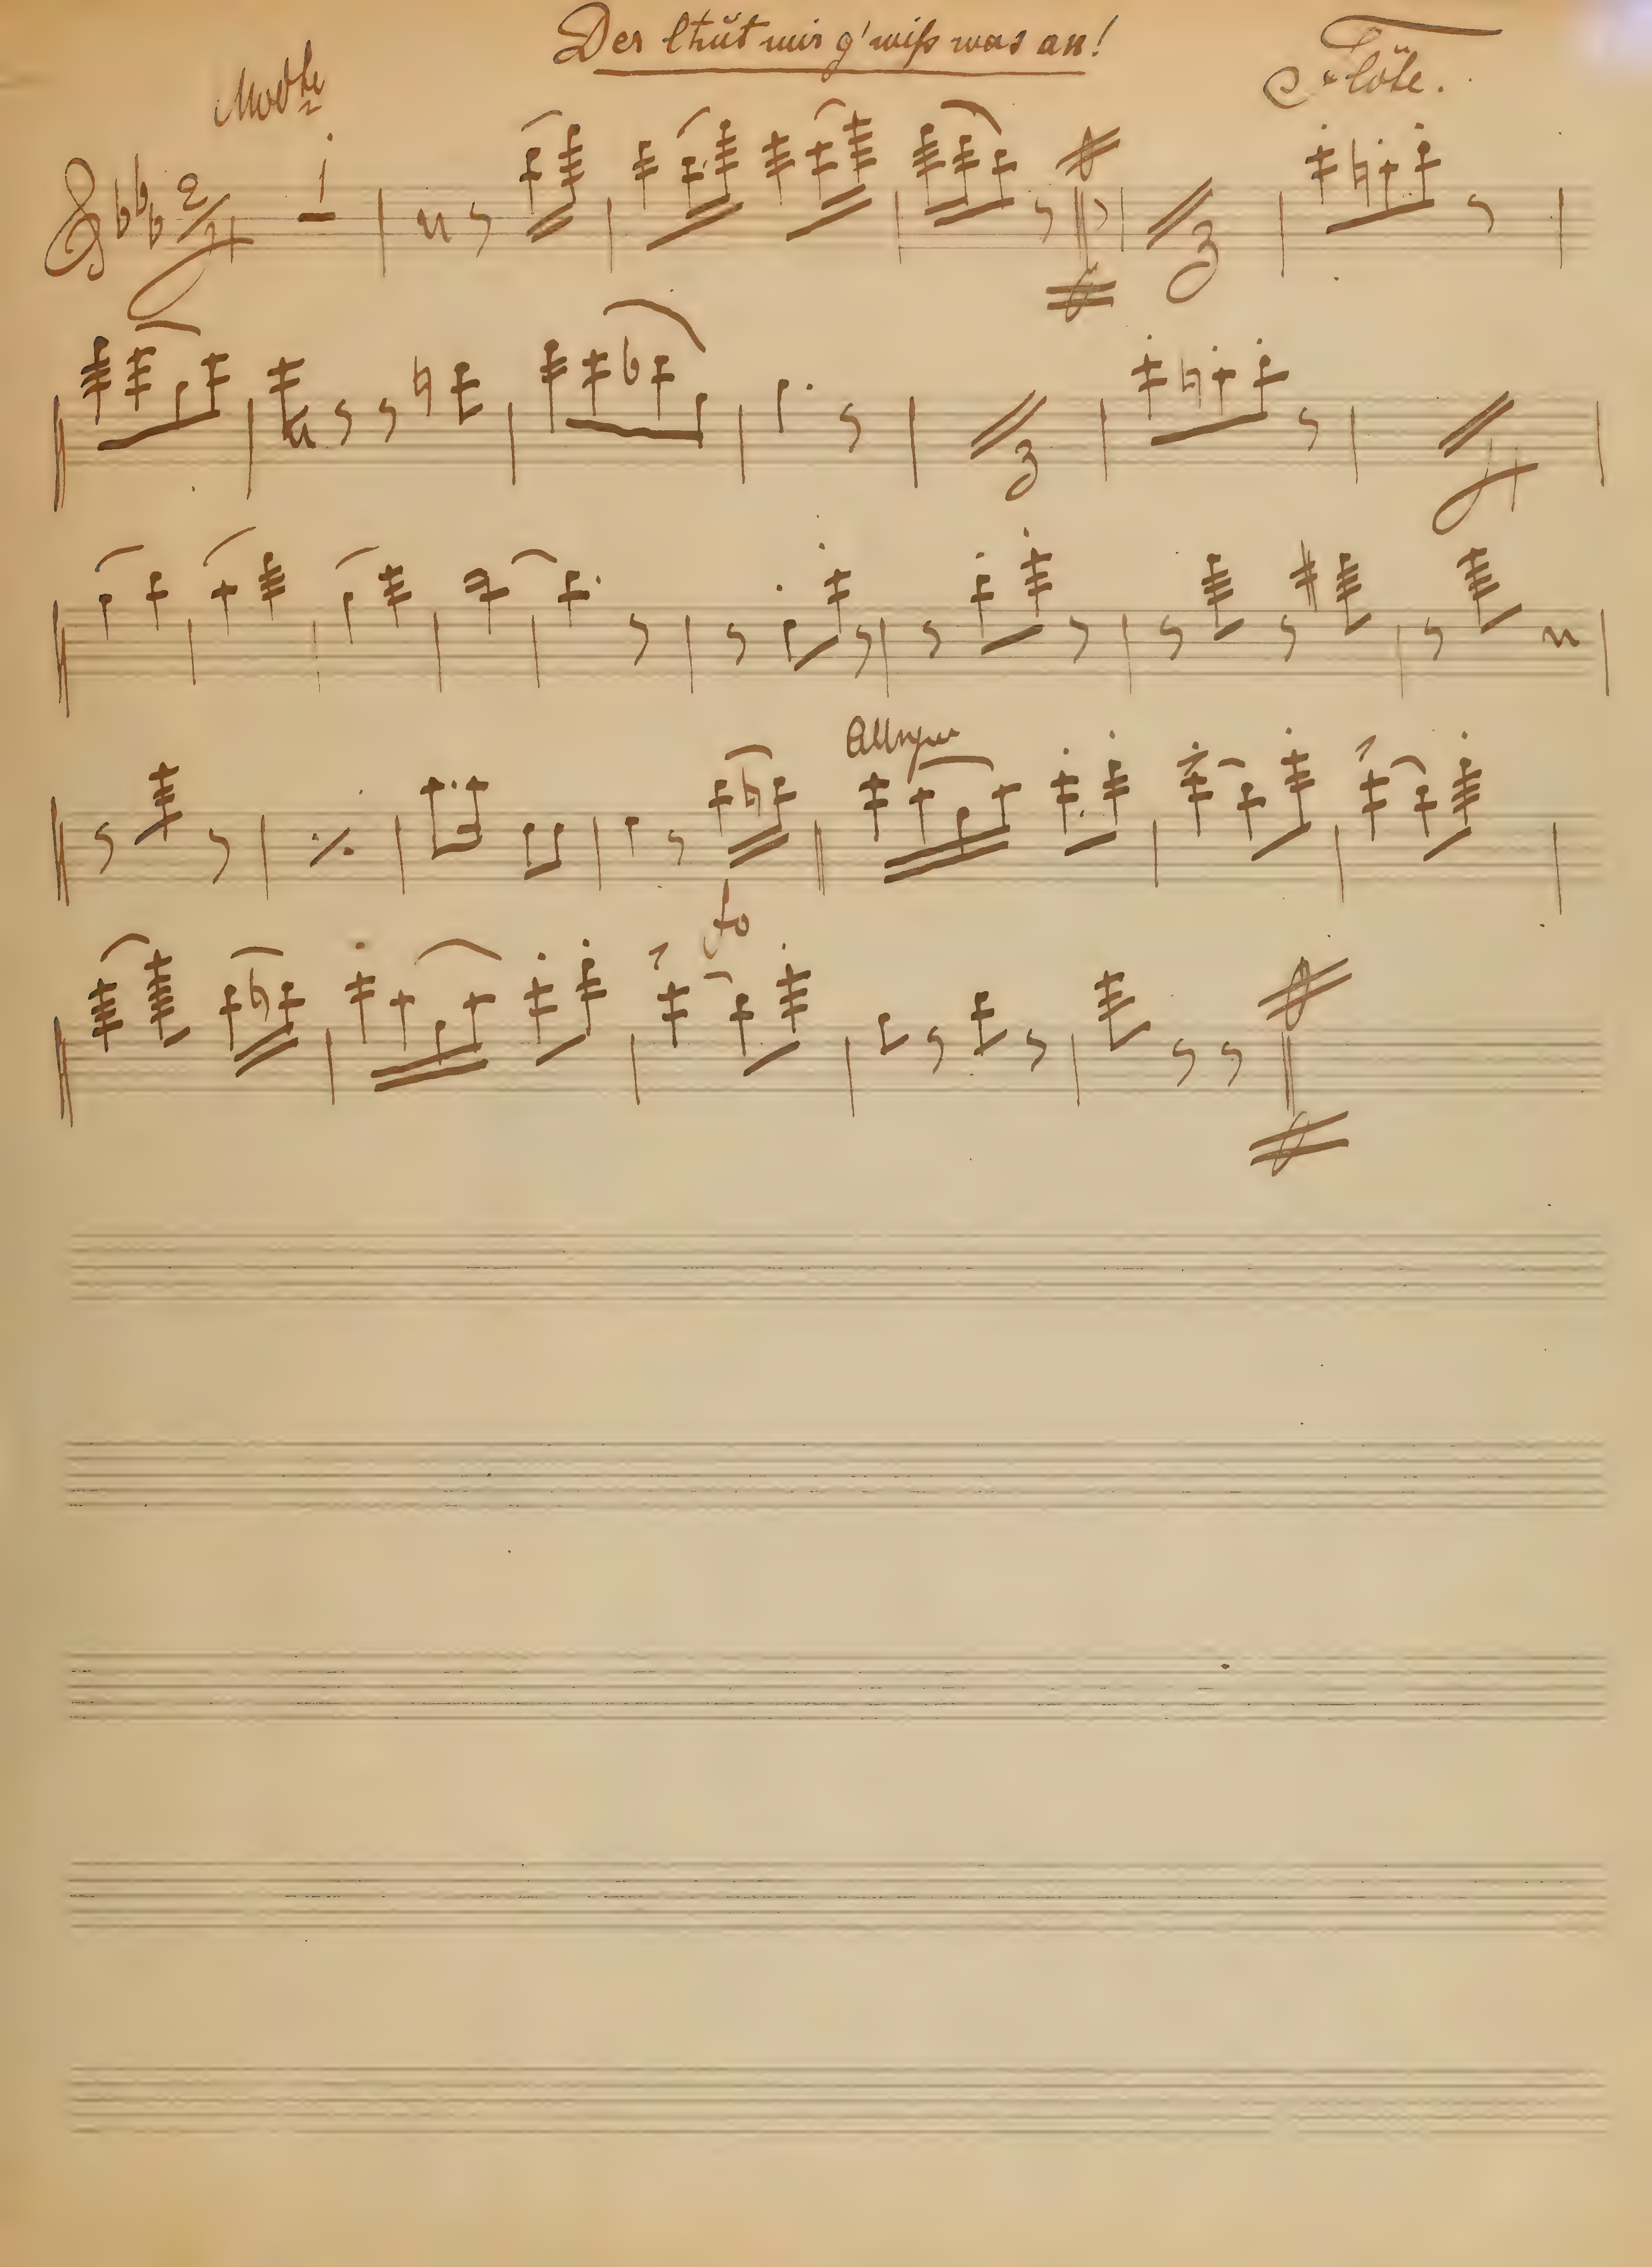 Der thŭt mir g'wiß was an!
Flöte.
Modto
2/4
1
3
3
4
Allegro
fo